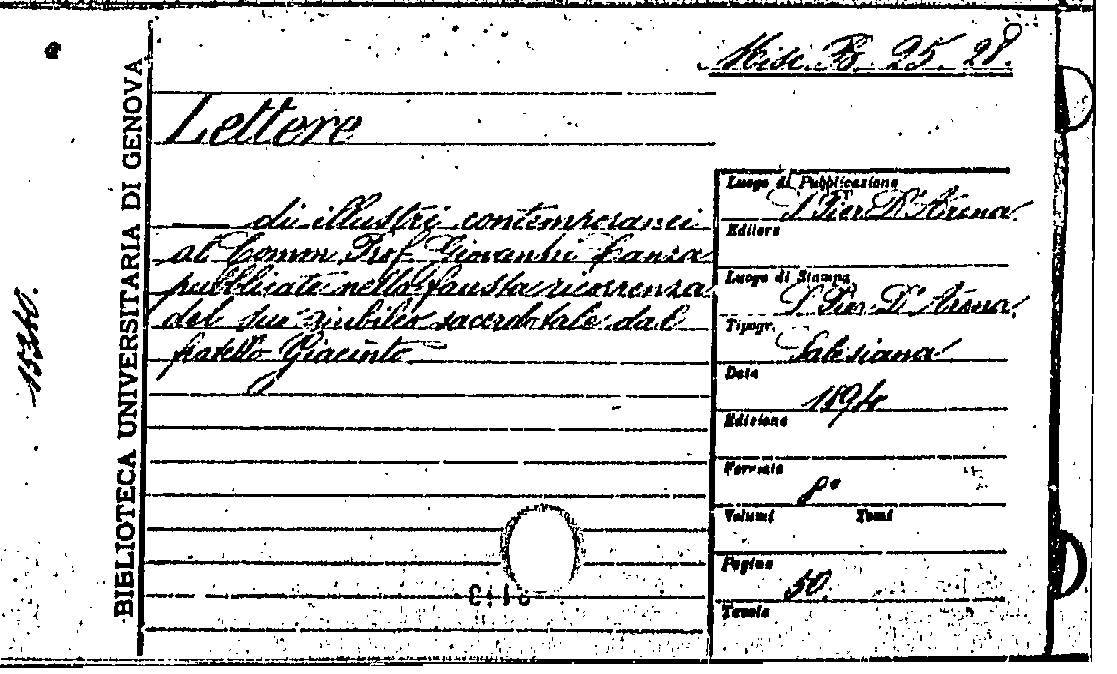 Misc. B. 25. 28.
Lettere
di illustri contemporanei
al Comm. Prof. Giovanni Lanza
pubblicate nella fausta ricorrenza
del suo giubileo sacerdotale dal
fratello Giacinto
BIBLIOTECA UNIVERSITARIA DI GENOVA
Luogo di Pubblicazione
S. Pier D'Arena
Editore
Luogo di Stampa
S. Pier D'Arena
Tipogr.
Salesiana
Data
1894
Edizione
Formato
8°
Volumi Tomi
Pagine
50
Tavole